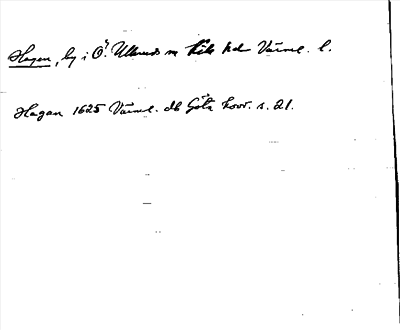 Hagen, by i Ö. Ullerud sn Kils hd Värml. l.
Hagan 1625 Värml. db Göta hovr. s. 21.